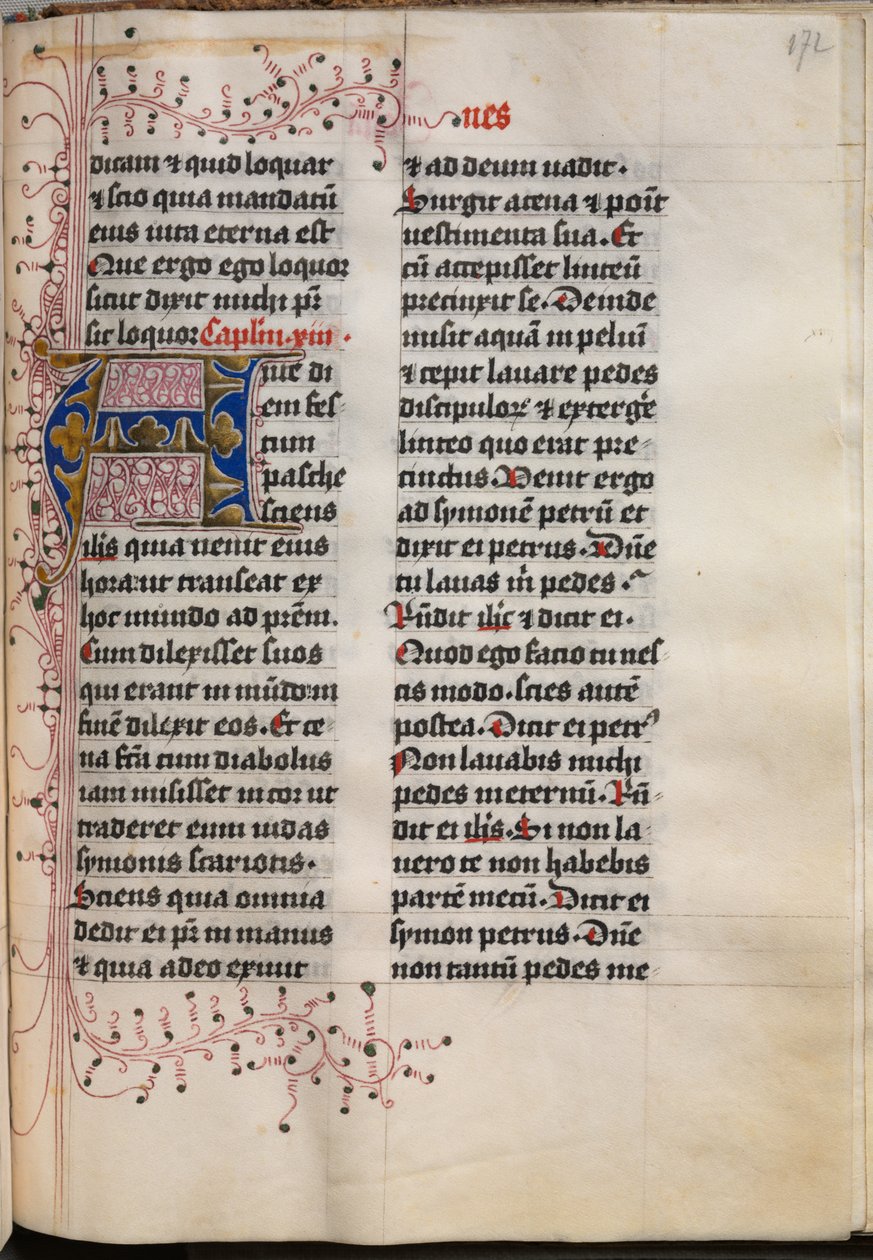 172
nes
dicam ⁊ quid loquar
⁊ scio quia mandatū
eius uita eterna est
Que ergo ego loquor
sicut dixit michi pr̄
sic loquor Caplm̄ .xiii.
Ante di
em fes-
tum
pasche
sciens
ih̄s quia uenit eius
hora ut transeat ex
hoc mundo ad prēm.
Cum dilexisset suos
qui erant in mūdo in
finē dilexit eos. Et ce-
na fc̄a cum diabolus
iam misisset in cor ut
traderet eum iudas
symonis scariotis.
Sciens quia omnia
dedit ei pr̄ in manus
⁊ quia a deo exiuit
⁊ ad deum uadit.
Surgit a cena ⁊ poīt
uestimenta sua. Et
cū accepisset linteū
precinxit se. Deinde
misit aquā in peluī
⁊ cepit lauare pedes
discipuloꝝ ⁊ extergē
linteo quo erat pre-
cinctus. Uenit ergo
ad symonē petrū et
dixit ei petrus. Dn̄e
tu lauas m̄ pedes.
Rn̄dit ih̄c ⁊ dicit ei.
Quod ego facio tu nes-
cis modo. scies autē
postea. Dicit ei petrꝰ
Non lauabis michi
pedes in eternū. Rn̄-
dit ei ih̄s. Si non la-
uero te non habebis
partē mecū. Dicit ei
symon petrus. Dn̄e
non tantū pedes me-